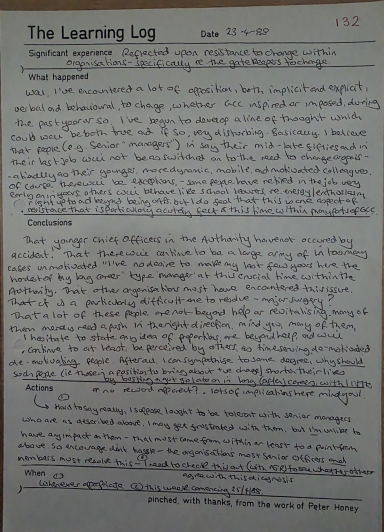 132
The Learning Log Date 23-4-88
Significant experience Reflected upon resistance to change within
organisations - specifically re the gatekeepers to change
What happened
Well, I've encountered a lot of opposition, both implicit and explicit,
verbal and behavioural, to change, whether GCC inspired or imposed, during
the past year or so. I've begun to develop a line of thought which
could well be both true and if so, very disturbing. Basically I believe
that people (e.g. Senior "managers") in say their mid-late fifties and in
their last job will not be as switched on to the need to change organis-
ationally as their younger, more dynamic, mobile, and motivated colleagues.
Of course there will be exceptions, - some people have retired in the job very
early on in years others will behave like school leavers re energy/enthusiasm
right up to and beyond being 60ish, but I do feel that this is one aspect of
resistance that is particularly acutely felt at this time within many parts of GCC.
Conclusions
That younger Chief Officers in the Authority have not occured by
accident. That there will continue to be a large army of in too many
cases unmotivated "I've no desire to make my last few years here the
hardest of my long career" type manager at this crucial time within the
Authority. That other organisations must have encountered this issue.
That it is a particularly difficult one to resolve - major surgery?
That a lot of these people are not beyond help or revitalising, many of
them merely need a push in the right direction, mind you, many of them,
I hesitate to state any idea of proportions, are beyond help and will
continue to at least be perceived by others, as time serving de-motivated
de-motivating people. After all, I can sympathise to some degree. Why should
such people (i.e those in a position to bring about +ve change) shorten their lives
by busting a gut so late on in long (often) careers, with little
or no reward apparent? Lots of implications here mind you!
Actions
Hard to say really, I suppose I ought to be tolerant with senior managers
who are as described above, I may get frustrated with them, but I'm unlikely to
have any impact on them - that must come from within or at least to a point from
above. So encourage don't hassle - the organisations most Senior Officers and
members must resolve this - I need to check this out (with ASR) to see whether others
agree with this diagnosis
When
Whenever appropriate this week commencing 25/4/88.
pinched, with thanks, from the work of Peter Honey